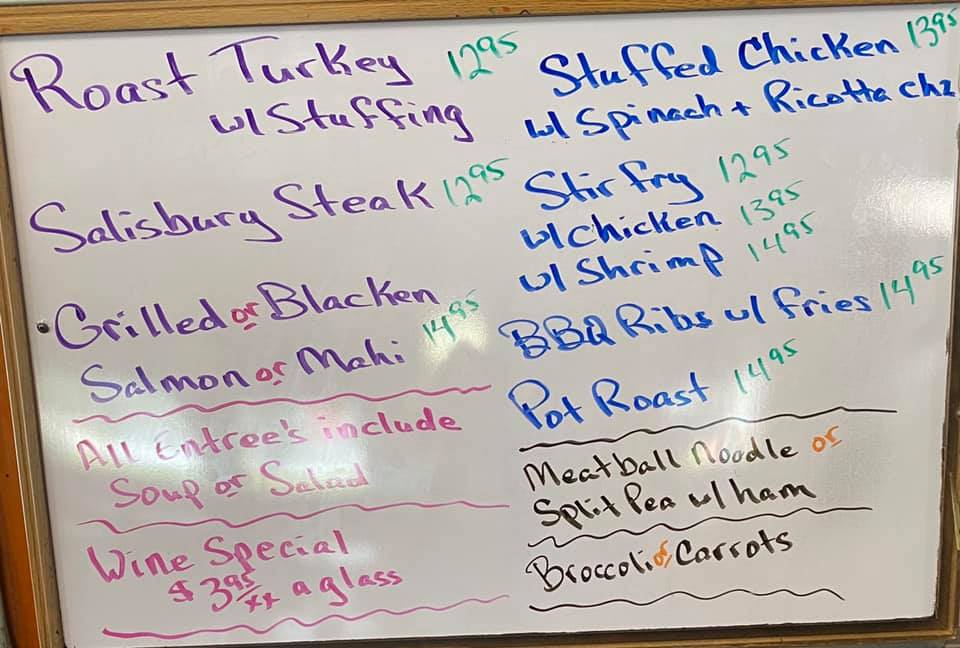 Roast Turkey 12.95
w/ Stuffing
Salisbury Steak 12.95
Grilled or Blacken
Salmon or Mahi 14.95
All Entree's include
Soup or Salad
Wine Special
$ 3.95 a glass
Stuffed Chicken 13.95
w/ Spinach + Ricotta chz
Stir fry 12.95
w/ chicken 13.95
w/ Shrimp 14.95
BBQ Ribs w/ fries 14.95
Pot Roast 14.95
Meatball Noodle or
Split Pea w/ ham
Broccoli or Carrots